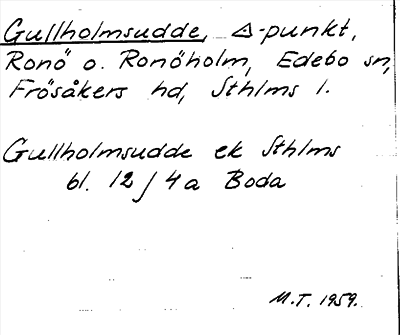 Gullholmsudde, △-punkt,
Ronö o. Ronöholm, Edebo sn,
Frösåkers hd, Sthlms l.
Gullholmsudde ek Sthlms
bl. 12 J 4 a Boda
M.T. 1959.